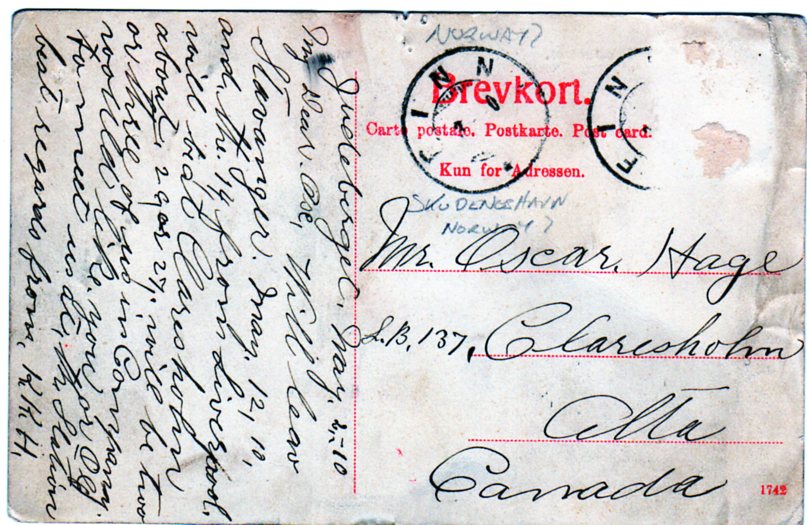 NORWAY?
FINN
FINN
Brevkort.
Carte postale. Postkarte. Post card.
Kun for Adressen.
SKUDENESHAVN
NORWAY?
Mr. Oscar. Hage
L.B, 137, Claresholm
Alta
Canada
1742
Judeberget, May, 2,-10
My Dear. Ose, Will leav
Stavanger. May, 12, 10,
and. th. 19 from Liverpool,
will bee at Claresholm
about, 29 or 27, will be two
or three of us in Company,
woolld like, you or
to meet us at, th Station
best regards from, H, H,